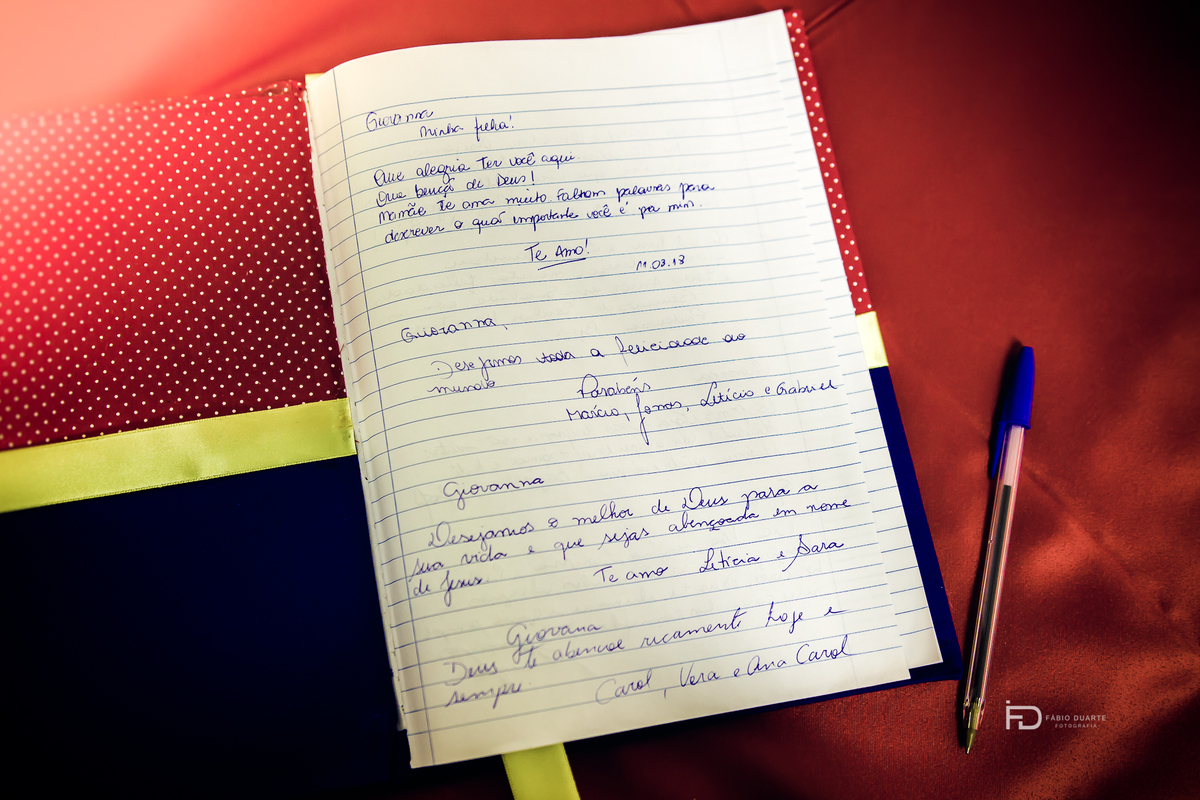 Giovanna
Minha filha!
Que alegria Ter você aqui
Que benção de Deus!
Mamãe Te ama muito Faltam palavras para
descrever o quão importante você é pra mim.
Te Amo!
11.03.13
Giovanna,
Desejamos toda a felicidade do
mundo
Parabéns
Márcio, Jonas, Letícia e Gabriel
Giovanna
Desejamos o melhor de Deus para a
sua vida e que sejas abençoada em nome
de Jesus.
Te amo Letícia e Sara
Giovana
Deus te abençoe ricamente hoje e
sempre.
Carol, Vera e Ana Carol
FD FÁBIO DUARTE
FOTOGRAFIA